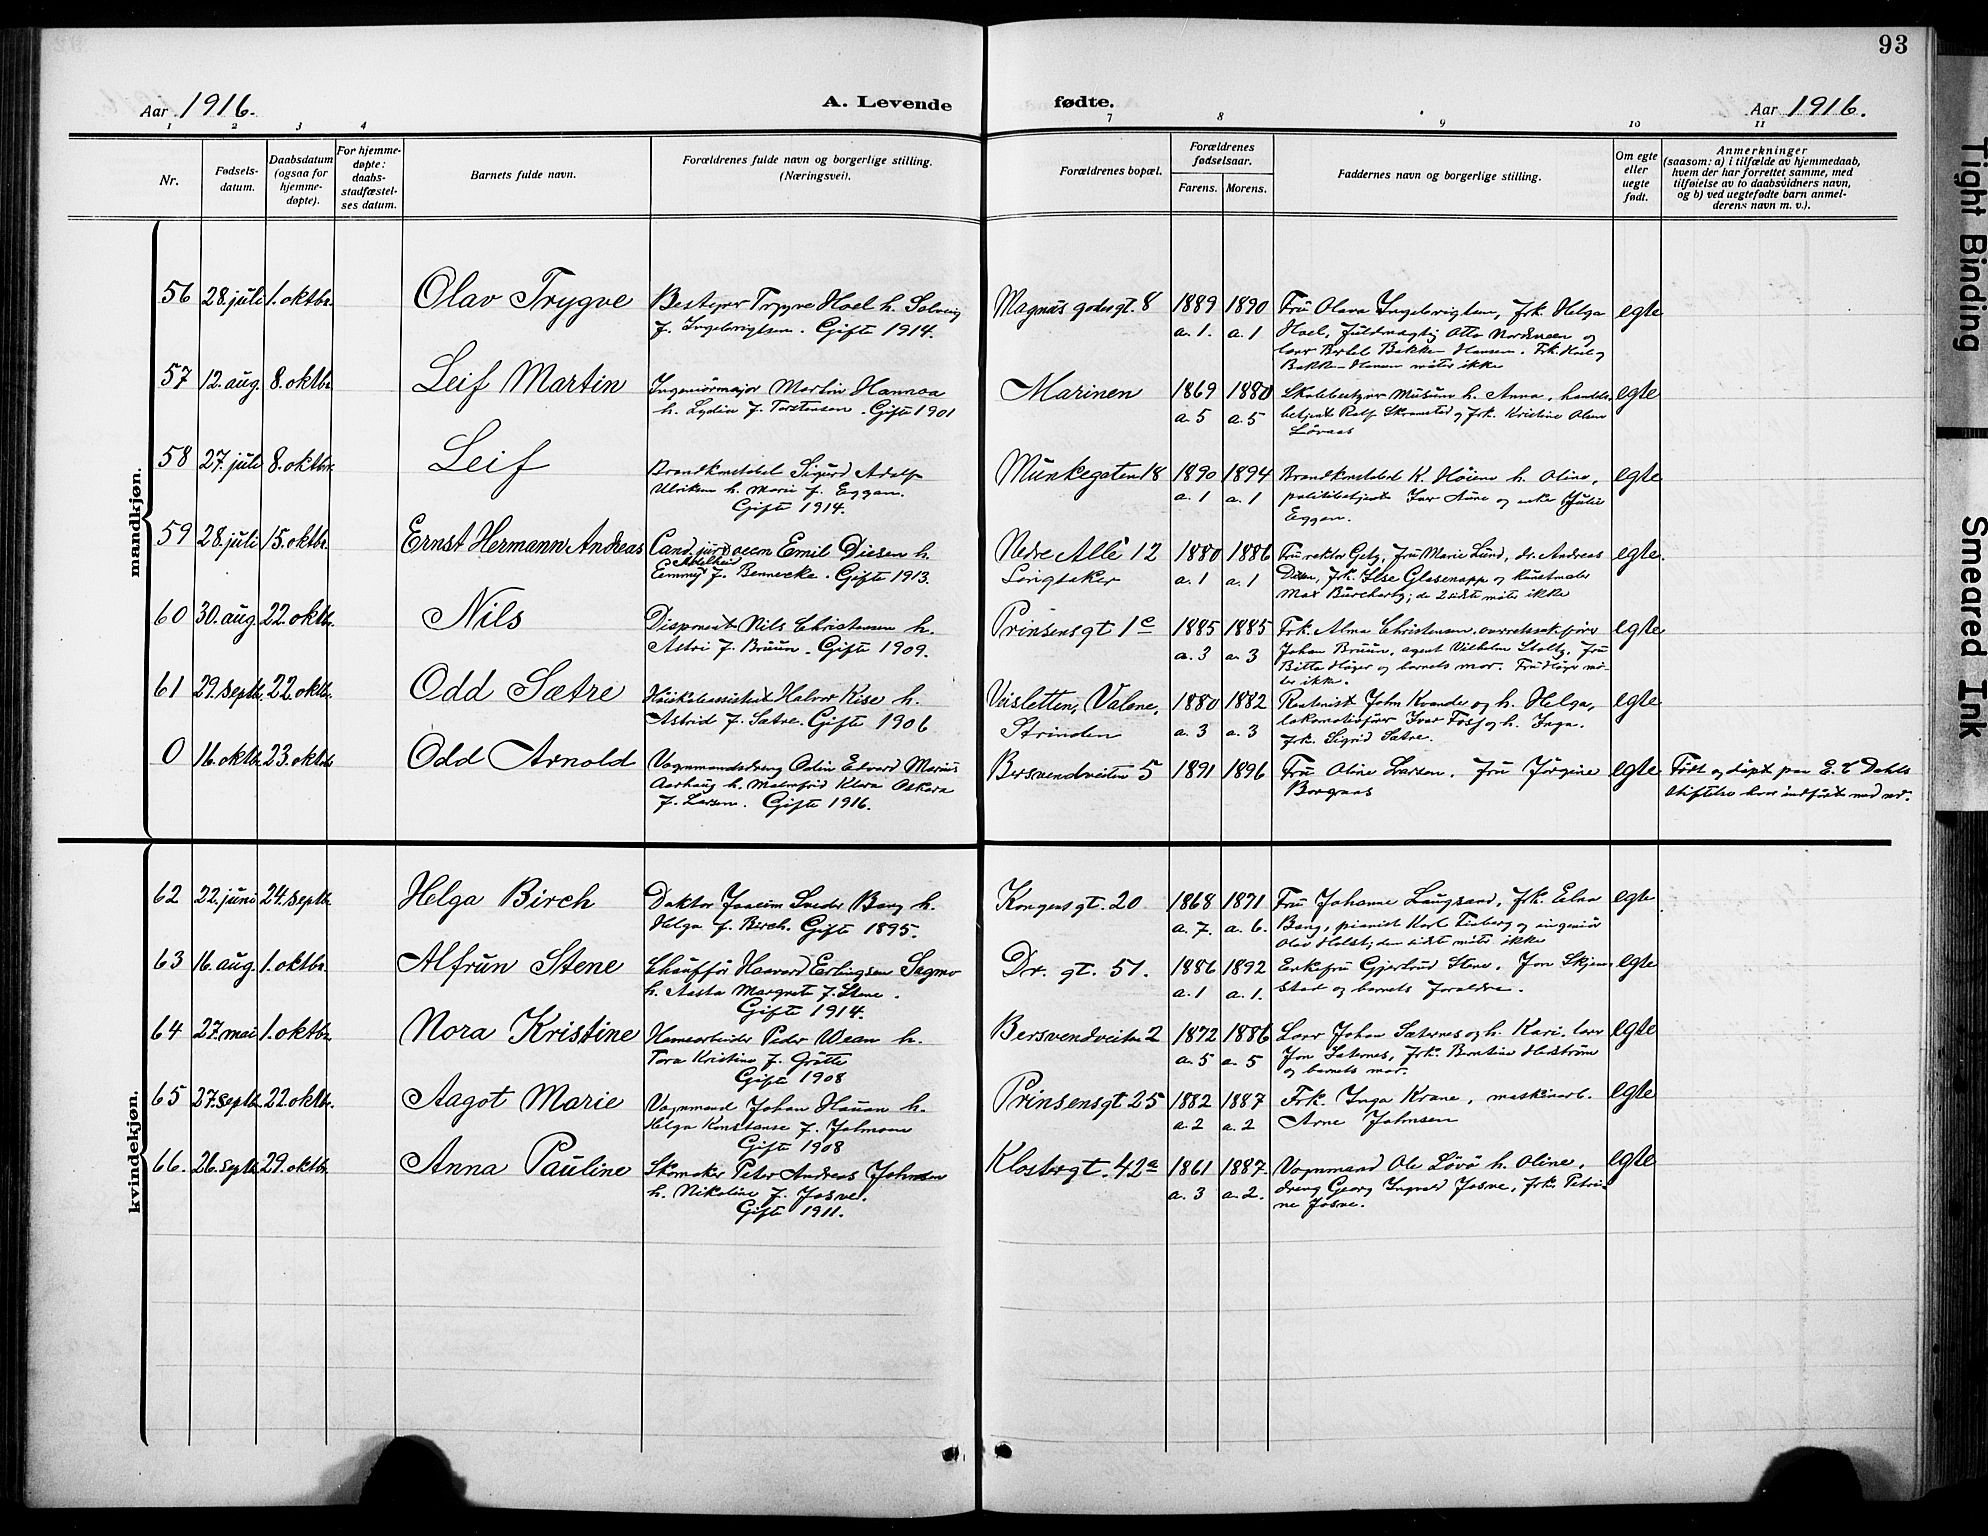 93
Aar 1916.
A. Levende fødte.
Aar 1916.
1 2 3 4 7 8 9 10 11
Nr.
Fødsels-
datum.
Daabsdatum
(ogsaa for
hjemme-
døpte).
For hjemme-
døpte:
daabs-
stadfæstel-
ses datum.
Barnets fulde navn.
Forældrenes fulde navn og borgerlige stilling.
(Næringsvei).
Forældrenes bopæl.
Forældrenes
fødselsaar.
Farens. Morens.
Faddernes navn og borgerlige stilling.
Om egte
eller
uegte
født.
Anmerkninger
(saasom: a) i tilfælde av hjemmedaab,
hvem der har forrettet samme, med
tilføielse av to daabsvidners navn,
og b) ved uegtefødte barn anmel-
derens navn m. v.).
mandkjøn.
56 28. juli 1. oktbr. Olav Trygve Bestyrer Trygve Hoel h. Solveig
f. Ingebrigtsen. Gift 1914.
Magnus godesgt. 8 1889 1890 Fru Olava Ingebrigtsen, frk. Helga egte
a. 1. a. 1 Hoel, fuldmægtig Otto og
lærer Bertel Bakken Hansen. Frk. Hoel og
Bakken Hansen møter ikke
57 12. aug. 8. oktbr. Leif Martin Ingeniørmajor Martin Hannoa
h. Lydia f. Torstensen. Gift 1901
Marinen 1869 1880 Skolebestyrer Musum h. Anna, handels- egte
a. 5 a. 5 betjent Rolf Skramstad og frk. Kristine Olsen
Løvaas
58 27. juli 8. oktbr. Leif Brandkonstabel Sigurd Adolf
Ulriksen h. Marie f. Eggen.
Gift 1914.
Munkegaten 18 1890 1894 Brandkonstabel K. Høiem h. Oline, egte
a. 1 a. 1 politibetjent Iver Aune og enke Julie
Eggen.
59 28. juli 15. oktbr. Ernst Hermann Andreas Cand. jur & oecon Emil Diesen h.
Adelheid
Emmy f. Bennecke. Gift 1913.
Nedre Allé 12 1880 1886 Fru rektor Getz, fru Marie Lund, dr. Andreas egte.
Singsaker a. 1 a. 1 Disen, frk. Ilse Glasenapp og kunstmaler
Max Burcharty; de 2 sidste møter ikke
60 30. aug. 22. oktbr. Nils Disponent Nils Christensen h.
Astri f. Bruun. Gift 1909.
Prinsensgt 1c 1885 1885 Frk. Alma Christensen, overretssakfører egte
a. 3 a. 3 Johan Bruun, agent Vilhelm Stoltz, Fru
Bitta Høyer og barnets mor. Fru Høyer mø-
ter ikke.
61 29. septbr. 22. oktbr. Odd Sætre Høiskoleassistent Halvor Kise h.
Astrid f. Sætre. Gift 1906
Veisletten, Valene, 1880 1882 Rentenist John Kvande og h. Helga, egte
Strinden a. 3 a. 3 lokomotivfør Ivar Fossj og h. Inga.
frk. Sigrid Sætre.
0 16. oktbr. 23. oktbr. Odd Arnold Vognmandsdreng Odin Edvard Marius
Aarhaug h. Malmfrid Klara Oskara
f. Larsen. Gift 1916.
Bersvendveiten 5 1891 1896 Fru Oline Larsen. Fru Jørgine egte Født og døpt paa E. C. Dahls
Borgaas stiftelse hvor indført med nr.
kvindekjøn.
62 22. juni 24. septbr. Helga Birch Doktor Joacim Sveder Bang h.
Helga f. Birch. Gift 1895.
Kongensgt. 20 1868 1871 Fru Johanne Laugsand, frk. Elna egte
a. 7. a. 6. Bang, pianist Karl Finberg og ingeniør
Olav Holst; den sidste møter ikke
63 16. aug. 1. oktbr. Alfrun Stene Chauffør Haavard Erlingsen Sagmo
h. Aasta Margrete f. Stene.
Gift 1914.
Dr. gt. 51. 1886 1892 Enkefru Gjertrud Stene. Jon Skjem- egte
a. 1 a. 1. stad og barnets forældre.
64 27. mai 1. oktbr. Nora Kristine Havnearbeider Peder Wean h.
Tora Kristine f. Grøtte
Gift 1908
Bersvendveiten 2 1872 1886 Lærer Johan Sæternes og h. Kari. lærer egte
a. 5 a. 5 Jon Sæternes, frk. Bentine Hedstrøm
og barnets mor.
65 27. septbr. 22. oktbr. Aagot Marie Vognmand Johan Hauan h.
Helga Konstanse f. Johnsen
Gift 1908
Prinsensgt 25 1882 1887 Frk. Inga Krane, maskinarb. egte
a. 2 a. 2 Arne Johnsen
66. 26. septbr. 29. oktbr. Anna Pauline Skomaker Peter Andreas Johnsen
h. Nikoline f. Josve.
Gift 1911.
Klostergt. 42a 1861 1887 Vognmand Ole Løvø h. Oline, egte
a. 3 a. 2. dreng Georg Ingvald Josve, frk. Petri-
ne Josve.
Tight Binding
Smeared Ink